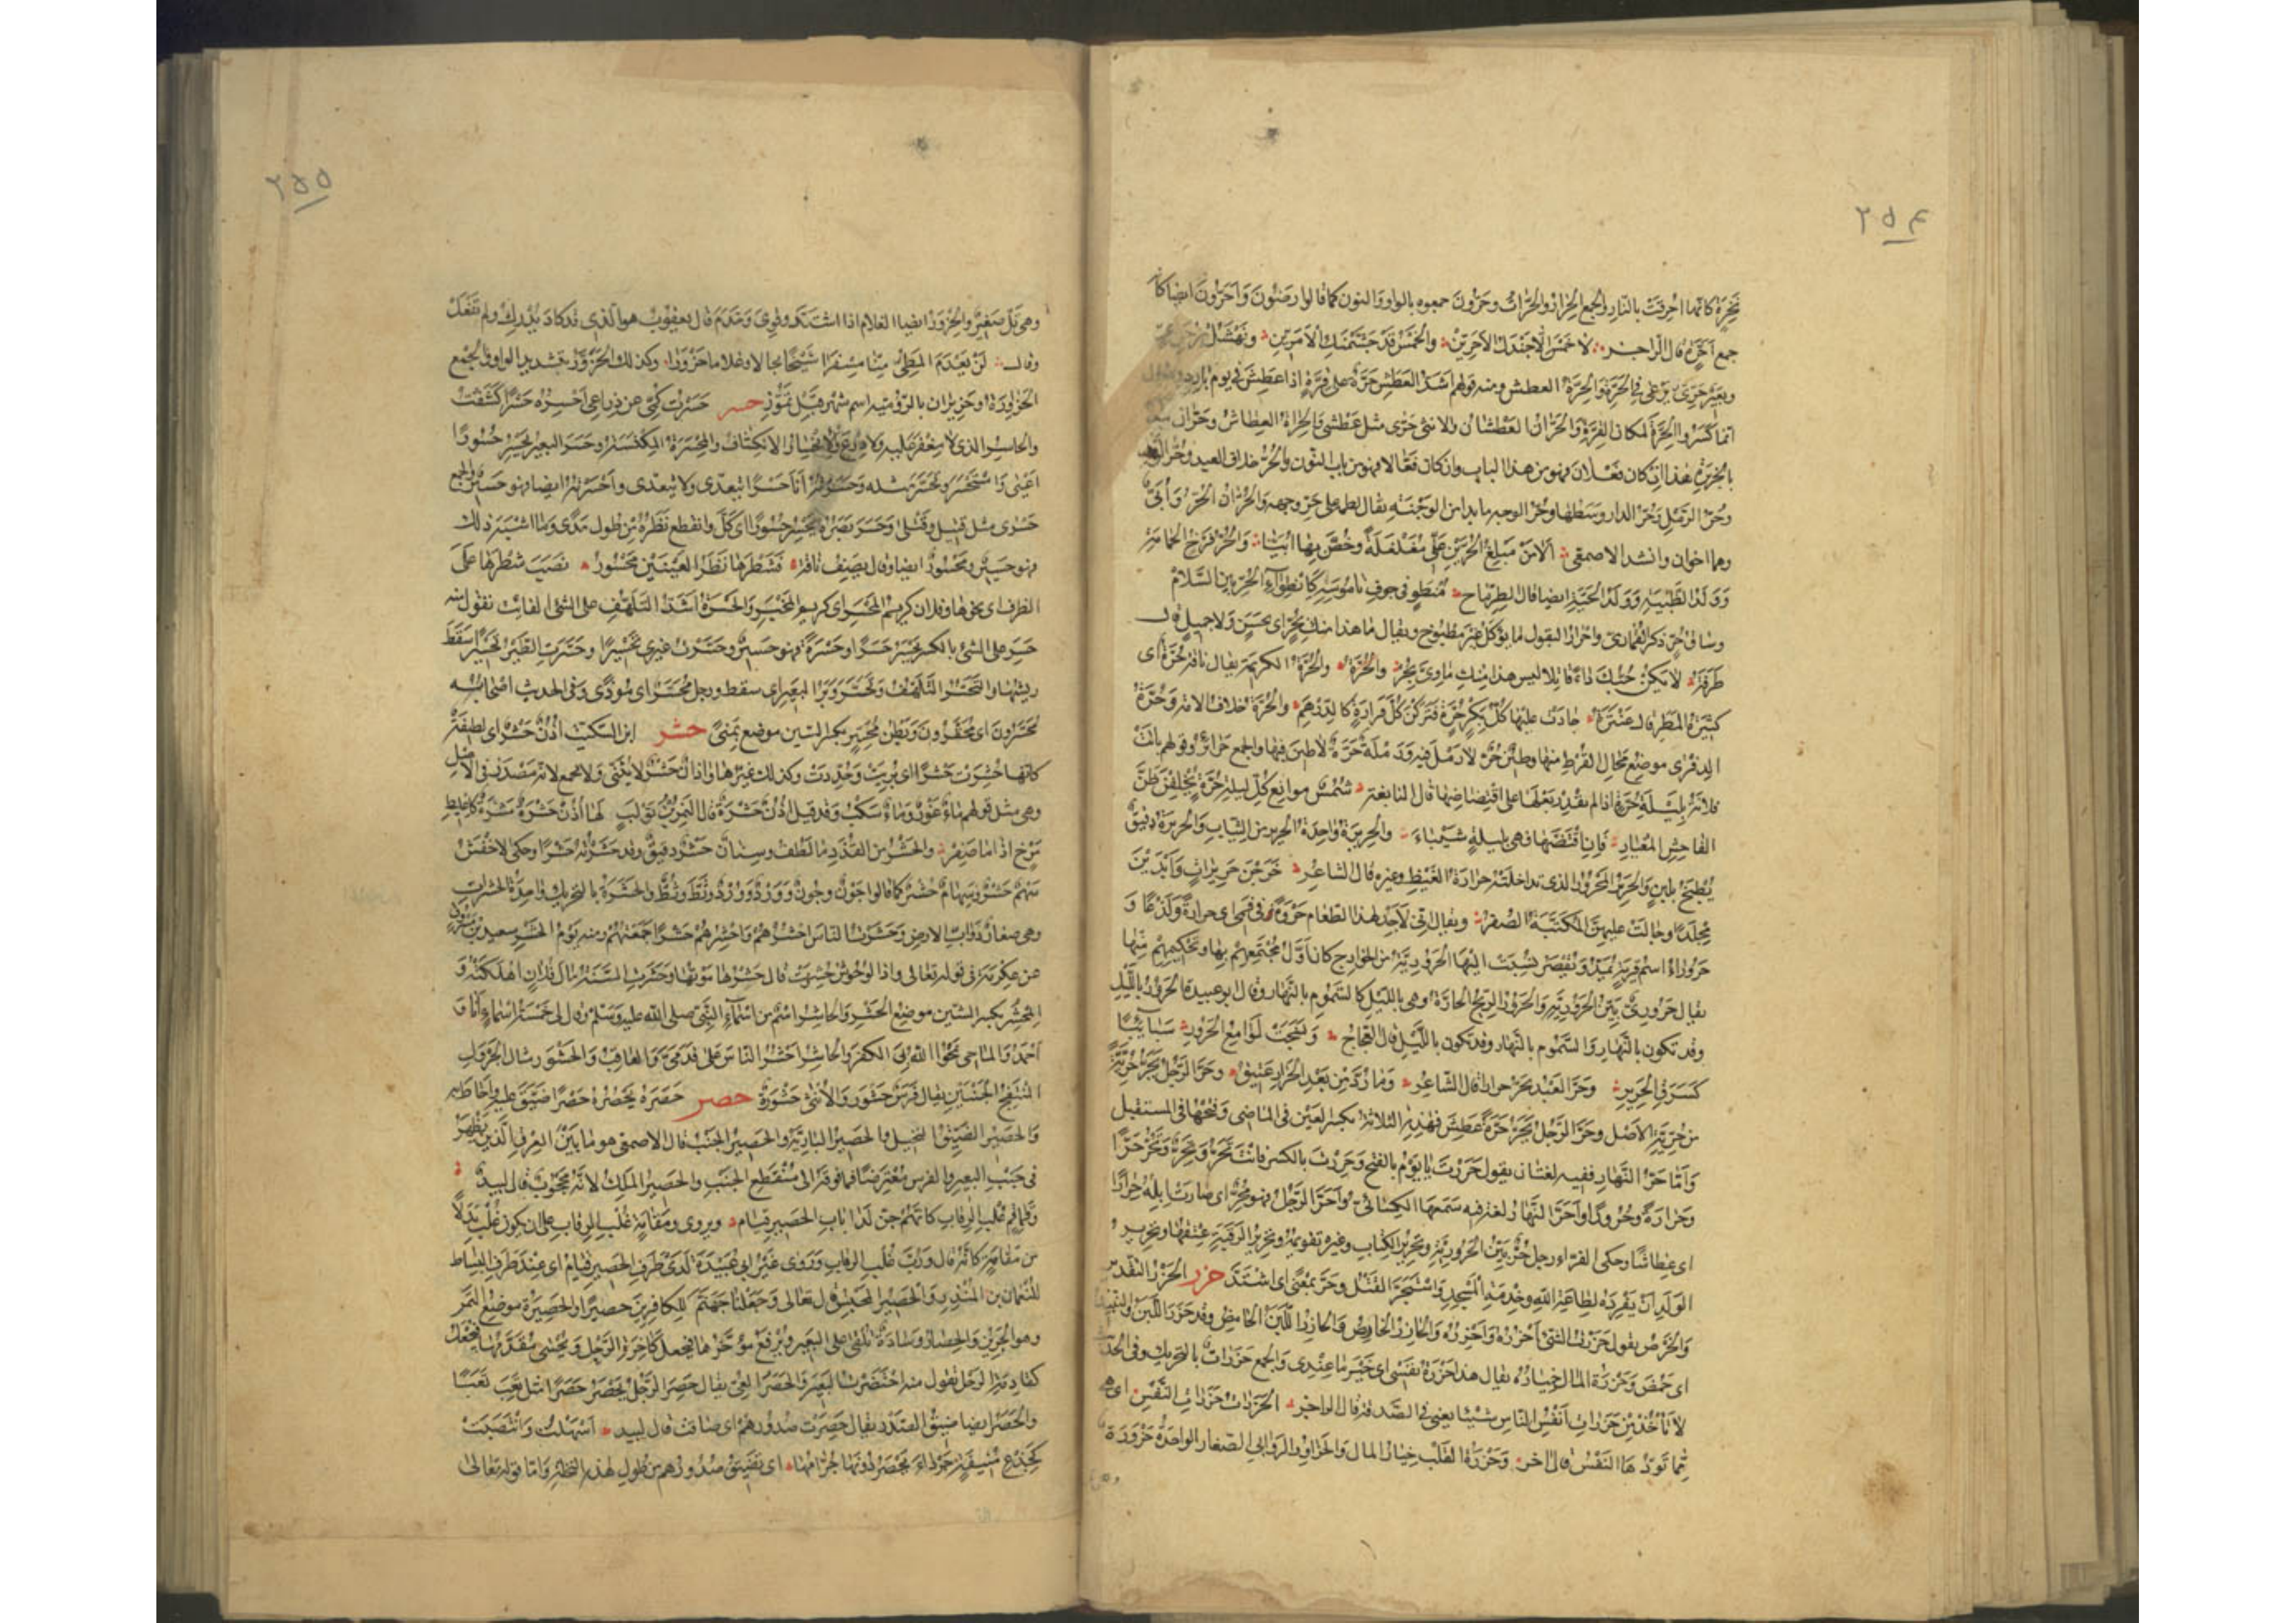 ٢٥٤
نخرة كانها احرقت بالنار والجمع الحرار والحرات وحرون جمعوه بالواو والنون كما قالوا ارضون واحرون ايضا كانه
جمع احرة قال الراجز لا خمس الا جندل الاحرين والخمس قد جشمنك الامرين
وبعير حرى يرعى فى الحرة والحرة العطش ومنه قولهم اشد العطش حرة على قرة اذا عطش فى يوم بارد
انما كسروا الحرة لمكان القرة والحران العطشان والانثى حرى مثل عطشى والحرار العطاش وحران
وحر الرمل وحر الدار وسطها وحر الوجه ما بدا من الوجنة يقال لطمه على حر وجهه والحران الحر وابى
وهما اخوان وانشد الاصمعى الا من مبلغ الحرين عنى مغلغلة وخص بها ابيا والحر فرخ الحمامة
وولد الظبية وولد الحية ايضا قال الطرماح منطو فى جوف ناموسه كانطواء الحر بين السلام
وساق حر ذكر القمارى واحرار البقول ما يؤكل غير مطبوخ ويقال ما هذا منك بحر اى بحسن ولا جميل قال
طرفة لا يكن حبك داء قاتلا ليس هذا منك ماوى بحر والحرة الكريمة يقال ناقة حرة اى
كثيرة المطر قال عنترة جادت عليها كل بكر حرة فتركن كل قرارة كالدرهم والحرة خلاف الامة وحرة
الذفرى موضع مجال القرط منها وطين حر لا رمل فيه ورملة حرة لا طين فيها والجمع حرائر وقولهم باتت
فلانة بليلة حرة اذا لم يقدر بعلها على اقتضاضها قال النابغة شمس موانع كل ليلة حرة يخلفن ظن
الفاحش المغيار فان اقتضها فهى بليلة شيباء والحريرة واحدة الحرير من الثياب والحريرة دقيق
يطبخ بلبن والحرير المحرور الذى تداخلته حرارة الغيظ وغيره قال الشاعر خرجن حريرات وابدين
مجلدا وجالت عليهن المكتبة الصفر ويقال انى لاجد لهذا الطعام حروة فى فمى اى حرارة ولذعا و
حروراء اسم قرية يمد ويقصر نسبت اليها الحرورية من الخوارج كان اول مجتمعهم بها وتحكيمهم منها
يقال حرورى بين الحرورية والحرور الريح الحارة وهى بالليل كالسموم بالنهار وقال ابو عبيدة الحرور بالليل
وقد تكون بالنهار والسموم بالنهار وقد تكون بالليل قال العجاج ونسجت لوامع الحرور سبائبا
كسرق الحرير وحر العبد يحر حرارا قال الشاعر وما رد من بعد الحرار عتيق وحر الرجل يحر حرية
من حرية الاصل وحر الرجل يحر حرة عطش فهذه الثلاثة بكسر العين فى الماضى وفتحها فى المستقبل
واما حر النهار ففيه لغتان يقول حررت يا يوم بالفتح وحررت بالكسر فانت تحر وتحر وتحر حرا
وحرارة وحرورا واحر النهار لغة فيه سمعها الكسائى واحر الرجل فهو محر اى صارت ابله حرارا
اى عطاشا وحكى الفراء رجل حر بين الحرورية وتحرير الكتاب وغيره تقويمه وتحرير الرقبة عتقها وتحرير
الولد ان يفرده لطاعة الله وخدمة المسجد واستحر القتل وحر بمعنى اى اشتد حزر الحزر التقدير
والخرص يقول حزرت الشئ احزره واحزره والحازر الخارص والحازر اللبن الحامض وقد حزر اللبن والنبيذ
اى حمض وحزرة المال خياره يقال هذا حزرة نفسى اى خير ما عندى والجمع حزرات بالتحريك وفى الحديث
لا تاخذ من حزرات انفس الناس شيئا يعنى فى الصدقة قال الراجز الحزرات حزرات النفس اى هى
مما تودها النفس قال آخر وحزرة القلب خيار المال والحزاور الروابى الصغار الواحدة حزورة
٢٥٥
وهى تل صغير والحزور ايضا الغلام اذا اشتد وقوى وخدم قال يعقوب هو الذى قد كاد يدرك ولم يفعل
وقال لن يعدم المطى منا مسفرا شيخا بجالا وغلاما حزورا وكذلك الحزور بتشديد الواو والجمع
الحزاورة وحزيران بالرومية اسم شهر قبل تموز حسر حسرت كمى عن ذراعى احسره حسرا كشفت
والحاسر الذى لا مغفر عليه ولا درع والانحسار الانكشاف والمحسرة المكنسة وحسر البعير يحسر حسورا
اعيى واستحسر وتحسر مثله وحسرته انا حسرا يتعدى ولا يتعدى واحسرته ايضا فهو حسير والجمع
حسرى مثل قتيل وقتلى وحسر بصره يحسر حسورا اى كل وانقطع نظره من طول مدى وما اشبه ذلك
فهو حسير ومحسور ايضا وقال يصف ناقة فشطرها نظر العينين محسور نصب شطرها على
الظرف اى نحوها وفلان كريم المحسر اى كريم المخبر والحسرة اشد التلهف على الشئ الفائت تقول منه
حسر على الشئ بالكسر يحسر حسرا وحسرة فهو حسير وحسرت غيرى تحسيرا وحسرت الطير تحسيرا سقط
ريشها والتحسر التلهف وتحسر وبر البعير اى سقط ورجل محسر اى موذى وفى الحديث اصحابه
محسرون اى محقرون وبطن محسر بكسر السين موضع بمنى حشر ابن السكيت اذن حشر اى لطيفة
كانها حشرت حشرا اى بريت وحددت وكذلك غيرها واذان حشر لا يثنى ولا يجمع لانه مصدر فى الاصل
وهى مثل قولهم ماء غور وماء سكب وقد قيل اذن حشرة قال النمر بن تولب لها اذن حشرة مشرة كاعليط
مرخ اذا ما صفر والحشر من القذذ ما لطف وسنان حشر دقيق وقد حشرته حشرا وحكى الاخفش
سهم حشر وسهام حشر كما قالوا جون وجون وورد وورد وثط وثط والحشرة بالتحريك واحدة الحشرات
وهى صغار دواب الارض وحشرت الناس احشرهم واحشرهم حشرا جمعتهم ومنه يوم الحشر سعيد بن مسروق
عن عكرمة فى قوله تعالى واذا الوحوش حشرت قال حشرها موتها وحشرت السنة مال فلان اهلكته و
المحشر بكسر الشين موضع الحشر والحاشر اسم من اسماء النبى صلى الله عليه وسلم وقال لى خمسة اسماء انا
احمد والماحى يمحو الله بى الكفر والحاشر احشر الناس على قدمى والعاقب والحشور مثال الجرول
المنتفخ الجنبين يقال فرس حشور والانثى حشورة حصر حصره يحصره حصرا ضيق عليه واحاط به
والحصير الضيق البخيل والحصير البارية والحصير الجنب قال الاصمعى هو ما بين العرق الذى يظهر
فى جنب البعير والفرس معترضا فما فوقه الى منقطع الجنب والحصير الملك لانه محجوب قال لبيد
وقماقم غلب الرقاب كانهم جن لدى باب الحصير قيام ويروى ومقامة غلب الرقاب على ان يكون غلب بدلا
من مقامة كانه قال ورب غلب الرقاب وروى غير ابى عبيدة لدى طرف الحصير قيام اى عند طرف البساط
للنعمان بن المنذر والحصير المحبس قال تعالى وجعلنا جهنم للكافرين حصيرا والحصيرة موضع التمر
وهو الجرين والحصار وسادة تلقى على البعير ويرفع مؤخرها فيجعل كاخرة الرحل ويحشى مقدمها فيجعل
كقادمة الرحل تقول منه احتصرت البعير والحصر العى يقال حصر الرجل يحصر حصرا مثل تعب تعبا
والحصر ايضا ضيق الصدر يقال حصرت صدورهم اى ضاقت قال لبيد اسهلت وانتصبت
كجذع منيفة جرداء يحصر دونها جرامها اى تضيق صدورهم من طول هذه النخلة واما قوله تعالى